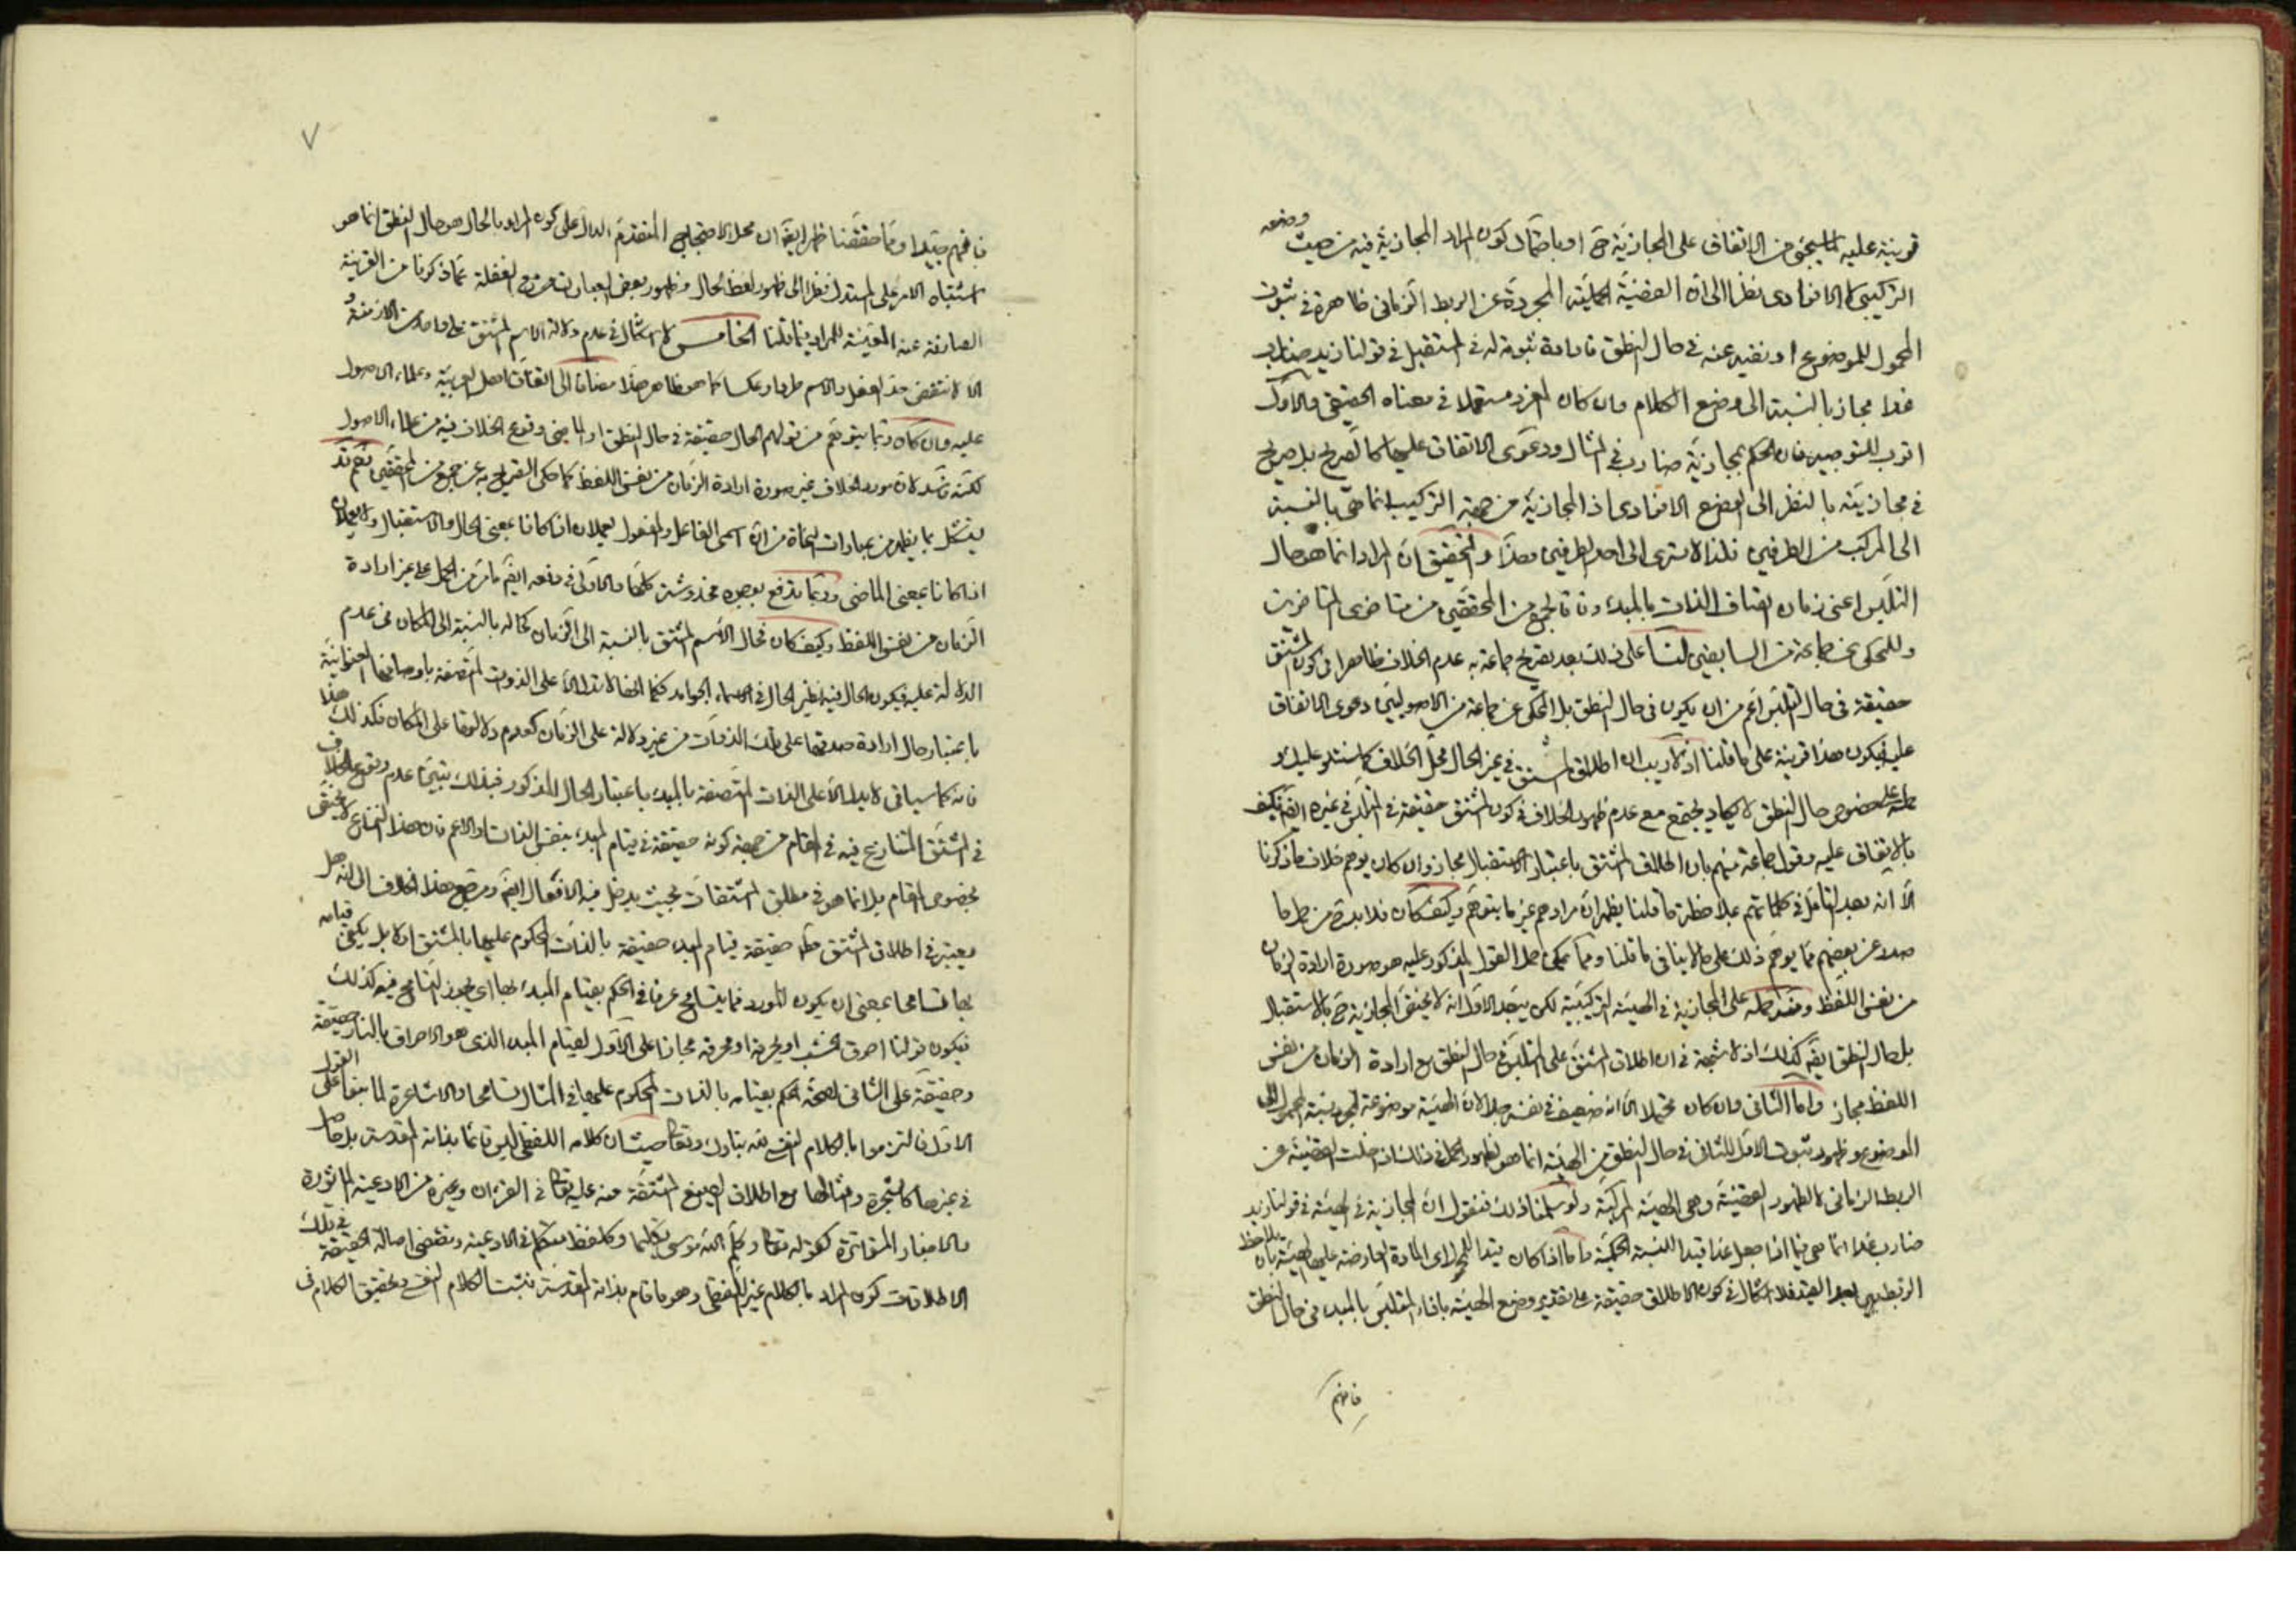 قرينة عليه لما سيجئ من الاتفاق على المجازية ح او باحتمال كون المراد المجازية فيه من حيث وضعه
التركيبي لا الافرادى نظرا الى ان القضية الحملية المجردة عن الربط الزمانى ظاهرة فى ثبوت
المحمول للموضوع او نفيه عنه فى حال النطق فارادة ثبوته له فى المستقبل فى قولنا زيد ضارب
غدا مجاز بالنسبة الى وضع الكلام وان كان المفرد مستعملا فى معناه الحقيقى والاول
اقرب للتوجيه فان الحكم بمجازية ضارب فى المثال ودعوى الاتفاق عليها كالصريح بل صريح
فى مجازيته بالنظر الى الوضع الافرادى اذ المجازية من جهة التركيب انما هى بالنسبة
الى المركب من الطرفين فلا تسرى الى احد الطرفين وهذا والتحقيق ان المراد انما هو حال
التلبس اعنى زمان اتصاف الذات بالمبدء وفاقا لجمع من المحققين من متاخرى المتاخرين
وللمحكى عن جماعة من السابقين لنا على ذلك بعد تصريح جماعة به عدم الخلاف ظاهرا فى كون المشتق
حقيقة فى حال التلبس اعم من ان يكون فى حال النطق بل المحكى عن جماعة من الاصوليين دعوى الاتفاق
عليه فيكون هذا قرينة على ما قلنا اذ لا ريب ان اطلاق المشتق فى غير الحال محل الخلاف كما سنتلو عليك و
حمله على خصوص حال النطق لا يكاد يجتمع مع عدم ظهور الخلاف فى كون المشتق حقيقة فى التلبس فى غيره ايضا فكيف
بالاتفاق عليه وقول جماعة منهم بان اطلاق المشتق باعتبار الاستقبال مجاز وان كان يوهم خلاف ما ذكرنا
الا انه بعد التامل فى كلماتهم بملاحظة ما قلنا يظهر ان مرادهم غير ما يتوهم وكيف كان فلا بد من حمل ما
صدر عن بعضهم مما يوهم ذلك على ما لا ينافى ما قلنا ومما يمكن حمل القول المذكور عليه هو صورة ارادة الزمان
من نفس اللفظ وحمله على المجازية فى الهيئة التركيبية لكن يتجه الاول انه لا يختص المجازية ح بالاستقبال
بل حال النطق ايضا كذلك اذ لا شبهة فى ان اطلاق المشتق على المتلبس فى حال النطق مع ارادة الزمان من نفس
اللفظ مجاز واما الثانى وان كان محتملا الا انه ضعيف فى نفسه جدا لان الهيئة موضوعة لمجرد نسبة المحمول الى
الموضوع وظهور ثبوت الاول للثانى فى حال النطق من الهيئة انما هو لظهور الحمل فى ذلك اذا خلت القضية عن
الربط الزمانى لا لظهور القضية وهى الهيئة المركبة ولو سلمنا ذلك فنقول ان المجازية فى الهيئة فى قولنا زيد
ضارب غدا انما هى فيما اذا جعل غدا قيدا للنسبة الحكمية واما اذا كان قيدا للمحمول اى المادة العارضة عليها الهيئة بان يلاحظ
الربط بعد القيد فلا اشكال فى كون الاطلاق حقيقة على تقدير وضع الهيئة بافادة المتلبس بالمبدء فى حال النطق
فافهم
٧
فافهم جيدا ومما حققنا ظهر ايضا ان محل الاحتجاج المتقدم الدال على كون المراد بالحال هو حال النطق انما هو
اشتباه الامر على المستدل نظرا الى ظهور لفظ الحال وظهور بعض العبارات مع الغفلة عما ذكرنا من القرينة
الصارفة عنه المعينة للمراد فيما قلنا الخامس لا اشكال فى عدم دلالة الاسم المشتق على واحد من الازمنة و
الا لانتقض حد الفعل والاسم طردا وعكسا كما هو ظاهر هذا مضافا الى اتفاق اهل العربية وعلماء الاصول
عليه وان كان ربما يتوهم من قولهم الحال حقيقة فى حال النطق او الماضى وقوع الخلاف فيه من علماء الاصول
لكنه فاسد لان مورد الخلاف غير صورة ارادة الزمان من نفس اللفظ كما حكى التصريح به عن جمع من المحققين نعم قد
يشكل بما يظهر من عبارات النحاة من ان اسمى الفاعل والمفعول يعملان اذا كانا بمعنى الحال والاستقبال ولا يعملان
اذا كانا بمعنى الماضى وربما يدفع بوجوه مخدوشة كلها والاولى فى دفعه ايضا ما مر من الحمل على غير ارادة
الزمان من نفس اللفظ وكيف كان فحال الاسم المشتق بالنسبة الى الزمان كحاله بالنسبة الى المكان فى عدم
الدلالة عليه فيكون الحال فيه نظير الحال فى الاسماء الجوامد فكما انها لا تدل الا على الذوات المتصفة باوصافها العنوانية
باعتبار حال ارادة صدقها على تلك الذوات من غير دلالة على الزمان كعدم دلالتها على المكان فكذلك هذا
فانه كما سياتى لا يدل الا على الذات المتصفة بالمبدء باعتبار الحال المذكور فبذلك يتبين عدم وقوع الخلاف
فى المشتق المتنازع فيه فى المقام من جهة كونه حقيقة فى قيام المبدء بنفس الذات او الاعم فان هذا النزاع لا يختص
بخصوص المقام بل انما هو فى مطلق المشتقات بحيث يدخل فيه الافعال ايضا ومرجع هذا الخلاف الى انه هل
يعتبر فى اطلاق المشتق حقيقة قيام المبدء حقيقة بالذات المحكوم عليها بالمشتق او لا بل يكفى قيامه
بها تسامحا بمعنى ان يكون المورد مما يتسامح عرفا فى الحكم بقيام المبدء بها اى يجوز التسامح فيه كذلك
فيكون قولنا احرق الخشب او يحرقه او محرقه مجازا على الاول لقيام المبدء الذى هو الاحراق بالنار حقيقة
وحقيقة على الثانى لصحة الحكم بقيامه بالذات المحكوم عليها فى المثال تسامحا والاشاعرة لما بنوا على القول
الاول فالتزموا بالكلام النفسى لله تبارك وتعالى حيث ان كلامه اللفظى ليس قائما بذاته المقدسة بل حاصل
فى غيرها كالشجرة وامثالها مع اطلاق الصيغ المشتقة منه عليه تعالى فى القران وغيره من الادعية الماثورة
والاخبار المتواترة كقوله تعالى وكلم الله موسى تكليما وكلفظ متكلم فى الادعية ومقتضى اصالة الحقيقة فى تلك
الاطلاقات كون المراد بالكلام غير اللفظى وهو ما قام بذاته المقدسة فثبت الكلام النفسى وتحقيق الكلام فى